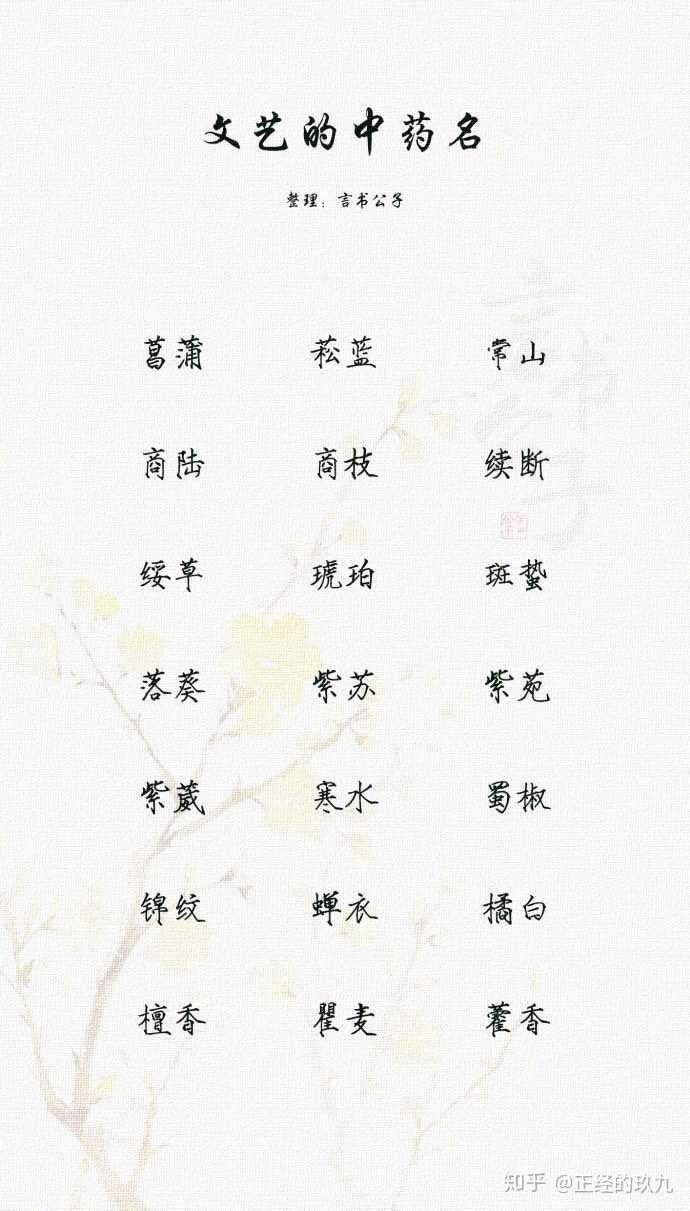 文艺的中药名
整理：言书公子
菖蒲 菘蓝 常山
商陆 商枝 续断
绥草 琥珀 斑蛰
落葵 紫苏 紫苑
紫葳 寒水 蜀椒
锦纹 蝉衣 橘白
檀香 瞿麦 藿香
言书公子
知乎 @正经的玖九